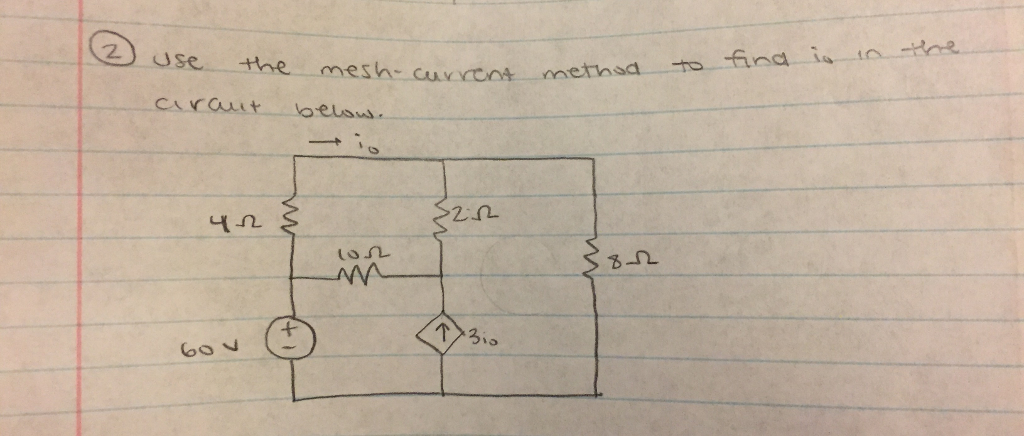 ② Use the mesh-current method to find i₀ in the
circuit below.
→ i₀
4Ω
2Ω
10Ω
8Ω
60 V
+
-
↑
3i₀